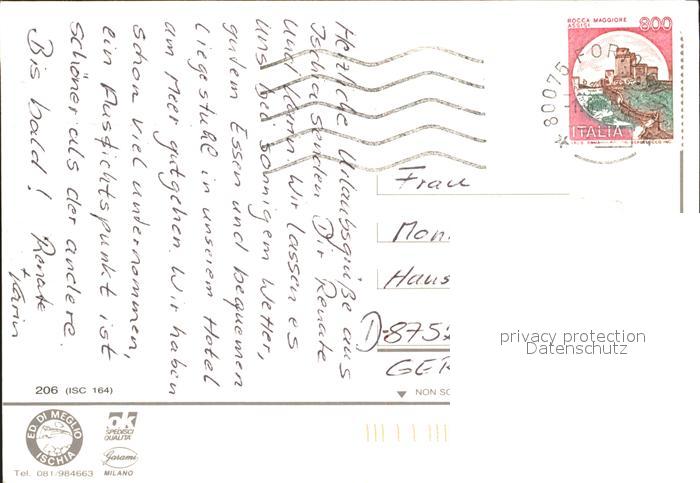 Herzliche Urlaubsgrüße aus
Ischia senden Dir Renate
und Karin. Wir lassen es
uns bei sonnigem Wetter,
gutem Essen und bequemen
Liegestuhl in unserem Hotel
am Meer gutgehen. Wir haben
schon viel unternommen,
ein Aussichtspunkt ist
schöner als der andere.
Bis bald! Renate
+ Karin
ROCCA MAGGIORE
ASSISI
800
ITALIA
80075 FOR
Frau
Mon.
Haus
D-875
GER
privacy protection
Datenschutz
206 (ISC 164)
NON SC
ED. DI MEGLIO
ISCHIA
Tel. 081/984663
ok
SPEDISCI
QUALITÀ
Garami
MILANO